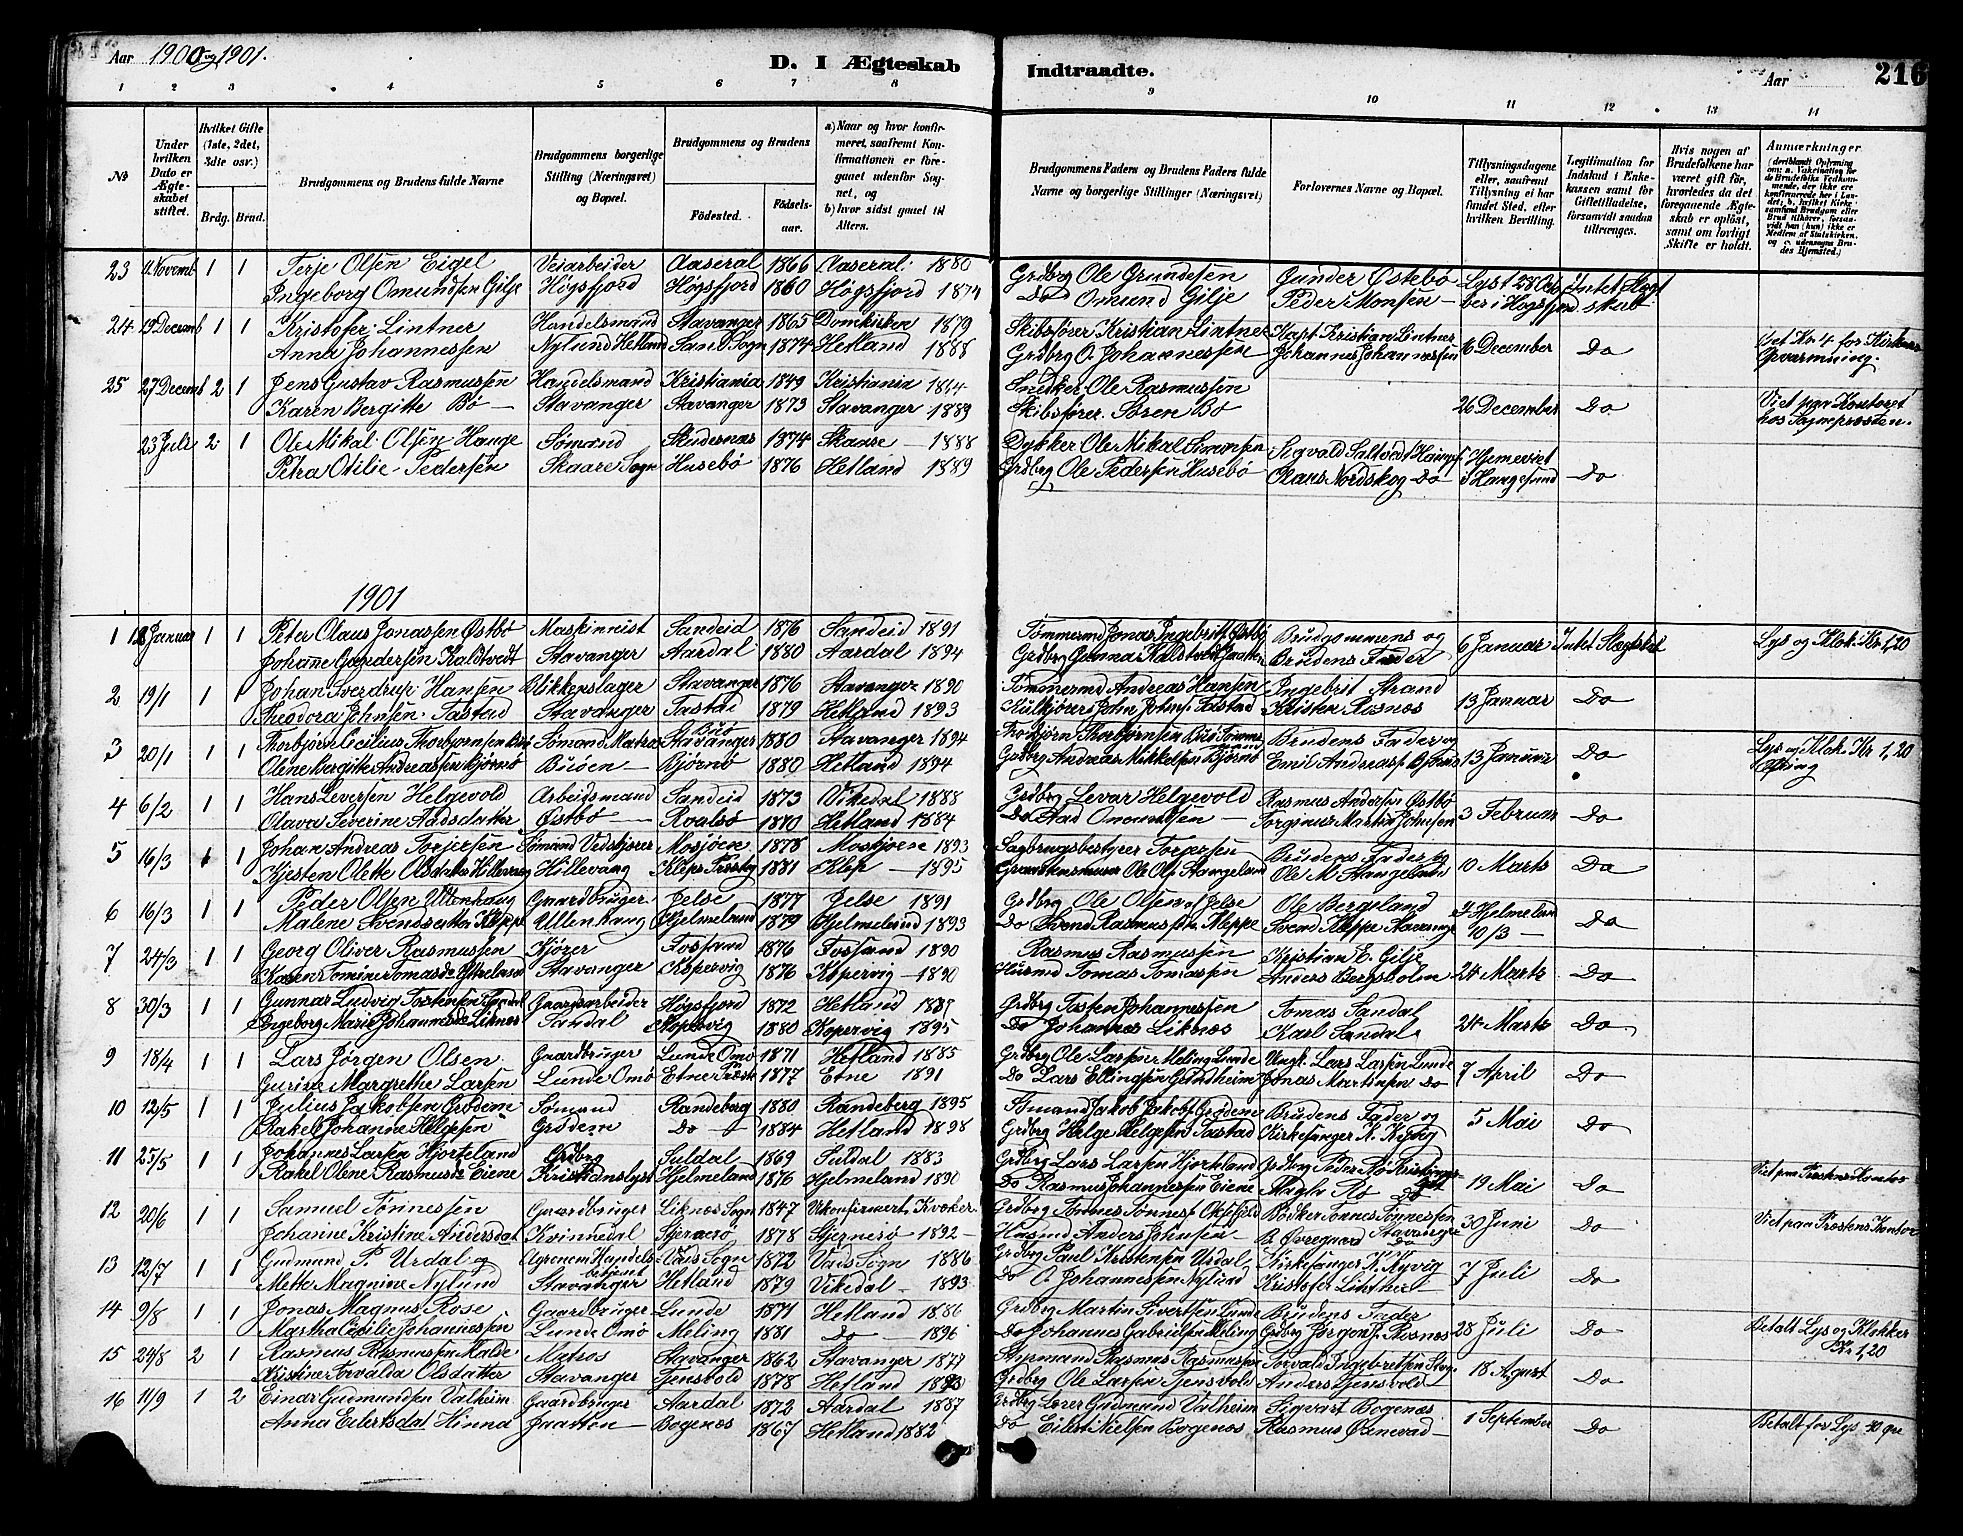 Aar 1900 og 1901.
D. I Ægteskab Indtraadte.
Aar
216
1 2 3 4 5 6 7 8 9 10 11 12 13 14
No
Under hvilken Dato er Ægteskabet stiftet.
Hvilket Gifte (1ste, 2det, 3die osv.)
Brdg. Brud.
Brudgommens og Brudens fulde Navne
Brudgommens borgerlige Stilling (Næringsvei) og Bopæl.
Brudgommens og Brudens
Fødested.
Fødselsaar.
a) Naar og hvor konfirmeret, saafremt Konfirmationen er foregaaet udenfor Sognet, og
b) hvor sidst gaaet til Altern.
Brudgommens Faders og Brudens Faders fulde Navne og borgerlige Stillinger (Næringsvei)
Forlovernes Navne og Bopæl.
Tillysningsdagene eller, saafremt Tillysning ei har fundet Sted, efter hvilken Bevilling.
Legitimation for Indskud i Enkekassen samt for Giftetilladelse, forsaavidt saadan tiltrænges.
Hvis nogen af Brudefolkene har været gift før, hvorledes da det foregaaende Ægteskab er opløst, samt om lovligt Skifte er holdt.
Anmærkninger
23 11 Novemb 1 1 Terje Olsen Eigel Veiarbeider Aaseral 1866 Aaseral 1880 Grdbrg Ole Grundesen Gunder Østebø Lyst 28 Octo Intet Slægt
Ingeborg Omundsen Gilje Høgsfjord Høgsfjord 1860 Høgsfjord 1874 Do Omund Gilje Peder Monsen ber i Høgsfjord skab
24 19 Decemb 1 1 Kristofer Lintner Handelsmand Stavanger 1865 Domkirken 1879 Skibsfører Kristian Lintner Kapt Kristian Lintner
Anna Johannessen Nylund Hetland Sand Sogn 1874 Hetland 1888 Grdbrg O. Johannessen Johannes Johannessen 16 December Do
Det Kr 4 for Kirkens Opvarmning.
25 27 Decemb 2 1 Jens Gustav Rasmussen Handelsmand Kristiania 1849 Kristiania 1864 Snedker Ole Rasmussen
Karen Bergitte Bø Stavanger Stavanger 1873 Stavanger 1889 Skibsfører Søren Bø 26 December Do
Viet paa Kontoret hos Sogneprosten.
23 Juli 2 1 Ole Mikal Olsen Hauge Sømand Skudesnæs 1874 Skaare 1888 Dykker Ole Mikal Simonsen Sigvald Saltvedt Hjemeviet
Petra Otilie Pedersen Skaare Sogn Husebø 1876 Hetland 1889 Grdbrg Ole Pedersen Husebø Olaus Nordskog Do i Haugesund Do
1901
1 18 Januar 1 1 Peter Olaus Jonassen Østbø Maskinnist Sandeid 1876 Sandeid 1891 Tømmermd Jonas Ingebritt Østbø Brudgommens og
Johanne Gundersen Kaldtvedt Stavanger Aardal 1880 Aardal 1894 Grdbrg Gunnar Kaldtvedt Brudens Fader 6 Januar Intet Slægtskab Lys og Klok. Kr 1,20
2 19/1 1 1 Johan Sverdrup Hansen Blikkenslager Stavanger 1876 Stavanger 1890 Tømmermd Andreas Hansen Ingebrit Strand
Theodora Johnsen Tastad Stavanger Tastad 1879 Hetland 1893 John Johns. Tastad Kristen Rosnæs 13 Januar Do
3 20/1 1 1 Thorbjørn Cecilius Thorbjørnsen Buø Sømand Matros Buø Stavanger 1880 Stavanger 1894 Thorbjørn Thorbjørnsen Buø Tømmermand Brudens Fader og
Olene Bergitte Andreassen Bjørnø Buøen Bjørnø 1880 Hetland 1894 Grdbrg Andreas Mikkelsen Bjørnø Emil Andreass. Bjørnø 13 Januar Do
Lys og Klok. Kr 1,20
4 6/2 1 1 Hans Leversen Helgevold Arbeidsmand Sandeid 1873 Vikedal 1888 Grdbrg Levar Helgevold Rasmus Andersen Østbø
Olava Severine Aadsdatter Østbø Roalsø 1870 Hetland 1884 Do Aad Omundsen Torginus Martin Johnsen 3 Februar Do
5 16/3 1 1 Johan Andreas Torjersen Sømand Mosjøen 1878 Mosjøen 1893 Sagbrugsbestyrer Torgersen Brudens Fader og
Kjesten Olette Olsdatter Hillevaag Hillevaag Klep 1881 Klep 1895 Ole Ols. Stangeland Ole M Stangeland 10 Marts Do
6 16/3 1 1 Peder Olsen Ullenhaug Gaardbruger Jelse 1877 Jelse 1891 Grdbrg Ole Olsen af Jelse Ole Bergeland
Malene Svendsdatter Kleppe Ullenhaug Hjelmeland 1879 Hjelmeland 1893 Do Svend Rasmussen Kleppe Svend Kleppe I Hjelmeland 10/3 Do
7 24/3 1 1 Georg Oliver Rasmussen Kjører Fossand 1876 Fossand 1890 Rasmus Rasmussen Kristian E. Gilje
Karen Tomine Tomasd. Stavanger Kopervig 1876 Kopervig 1890 Husmd Tomas Tomassen Anders Bergsholm 24 Marts Do
8 30/3 1 1 Gunnar Ludvig Tostensen Sandal Gaardsarbeider Høgsfjord 1872 Hetland Grdbrg Tosten Johannessen Tomas Sandal
Ingeborg Marie Johannesd. Liknæs Sandal Kopervig 1880 Kopervig 1895 Do Johannes Liknæs Karl Sandal 24 Marts Do
9 18/4 1 1 Lars Jørgen Olsen Gaardbruger Lunde Omø 1871 Hetland 1885 Grdbrg Ole Larsen Meling Lunde Ungk. Lars Larsen Lunde
Gurine Margrethe Larsen Lunde Omø Etne Præst 1877 Etne 1891 Do Lars Ellingsen Grindheim Jonas Martinsen Do 7 April Do
10 12/5 1 1 Julius Jakobsen Grødem Sømand Randeberg 1880 Randeberg 1895 Sømand Jakob Jakobs. Grødem Brudens Fader og
Rakel Johanne Helgesen Grødem Do 1884 Hetland 1898 Grdbrg Helge Helgesen Tastad Kirkesanger K. Kyvig 5 Mai Do
11 25/5 1 1 Johannes Larsen Hjorteland Grdbrg Suldal 1869 Suldal 1883 Grdbrg Lars Larsen Hjorteland Grdbrg Peder Rø
Rakel Olene Rasmusd. Eiene Kristianslyst Hjelmeland 1876 Hjelmeland 1890 Do Rasmus Johannessen Eiene Rø Do 19 Mai Do
Viet paa Prostens Kontor
12 20/6 1 1 Samuel Tønnessen Gaardbruger Liknæs Sogn 1847 Ukonfirmert Kvæker Grdbrg Tønnes Tønnes. Bødker Tønnes Tønnessen
Johanne Kristine Andersdat Kvinnedal Stjernerø 1878 Stjernerø 1892 Husmd Anders Johnsen B. Øvregaard Stavanger Do 30 Juni Do
Viet paa Prostens Kontor
13 12/7 1 1 Gudmund P. Urdal og Agronom Handelsbetjent Vats Sogn 1872 Vats Sogn 1886 Grdbrg Paul Kristensen Urdal Kirkesanger K. Kyvig
Mette Magnine Nylund Stavanger Hetland 1879 Vikedal 1893 Do O. Johannessen Nylund Kristofer Lintner 7 Juli Do
14 9/8 1 1 Jonas Magnus Rose Gaardbruger Lunde 1871 Hetland 1886 Grdbrg Martin Sivertsen Lunde Brudens Fader
Martha Cecilie Johannessen Lunde Omø Meling 1881 Do 1896 Do Johannes Gabrielsen Meling Grdbrg Jørgen J. Rosnæs 28 Juli Do
Betalt Lys og Klokker Kr 1,20
15 24/8 2 1 Rasmus Rasmussen Halde Matros Stavanger 1862 Stavanger 1877 Styrmand Rasmus Rasmussen Torvald Ingebretsen
Kristine Torvalda Olsdatter Stavanger Tjensvold 1878 Hetland 1893 Grdbrg Ole Larsen Tjensvold Anders Tjensvold 18 Agust Do
16 11/9 1 2 Einar Gudmundsen Valheim Gaardbruger Aardal 1872 Aardal 1887 Grdbrg Lærer Gudmund Valheim Sigvart Bogenæs
Anna Eilertsdat Hinna Jaatten Bogenæs 1867 Hetland 1882 Do Eilert Nielsen Bogenæs Rasmus Østnevad 1 September Do
Betalt for Lys 40 øre